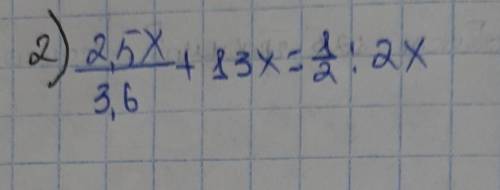 2) 2,5x/3,6 + 13x = 1/2 : 2x